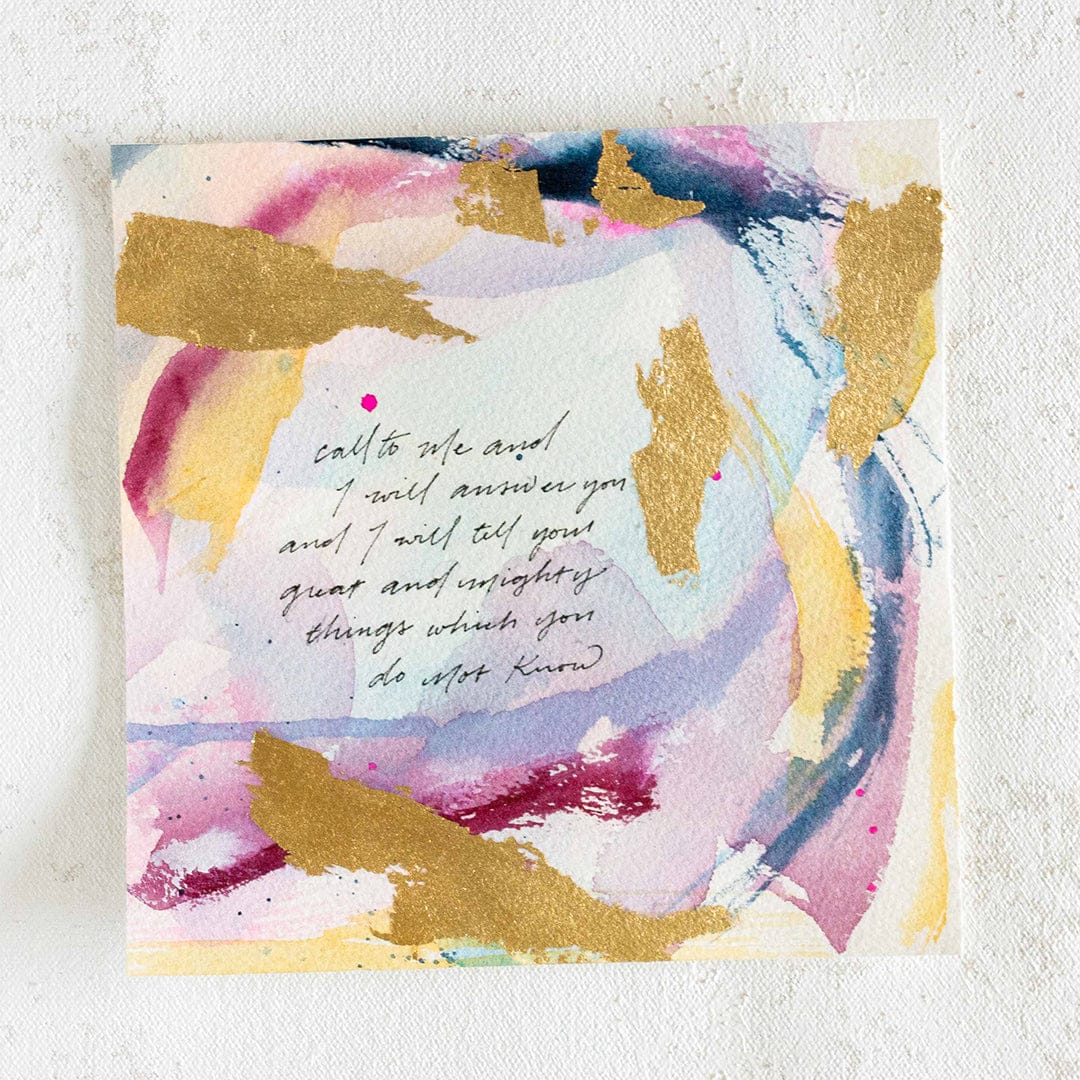 call to me and
I will answer you
and I will tell you
great and mighty
things which you
do not know